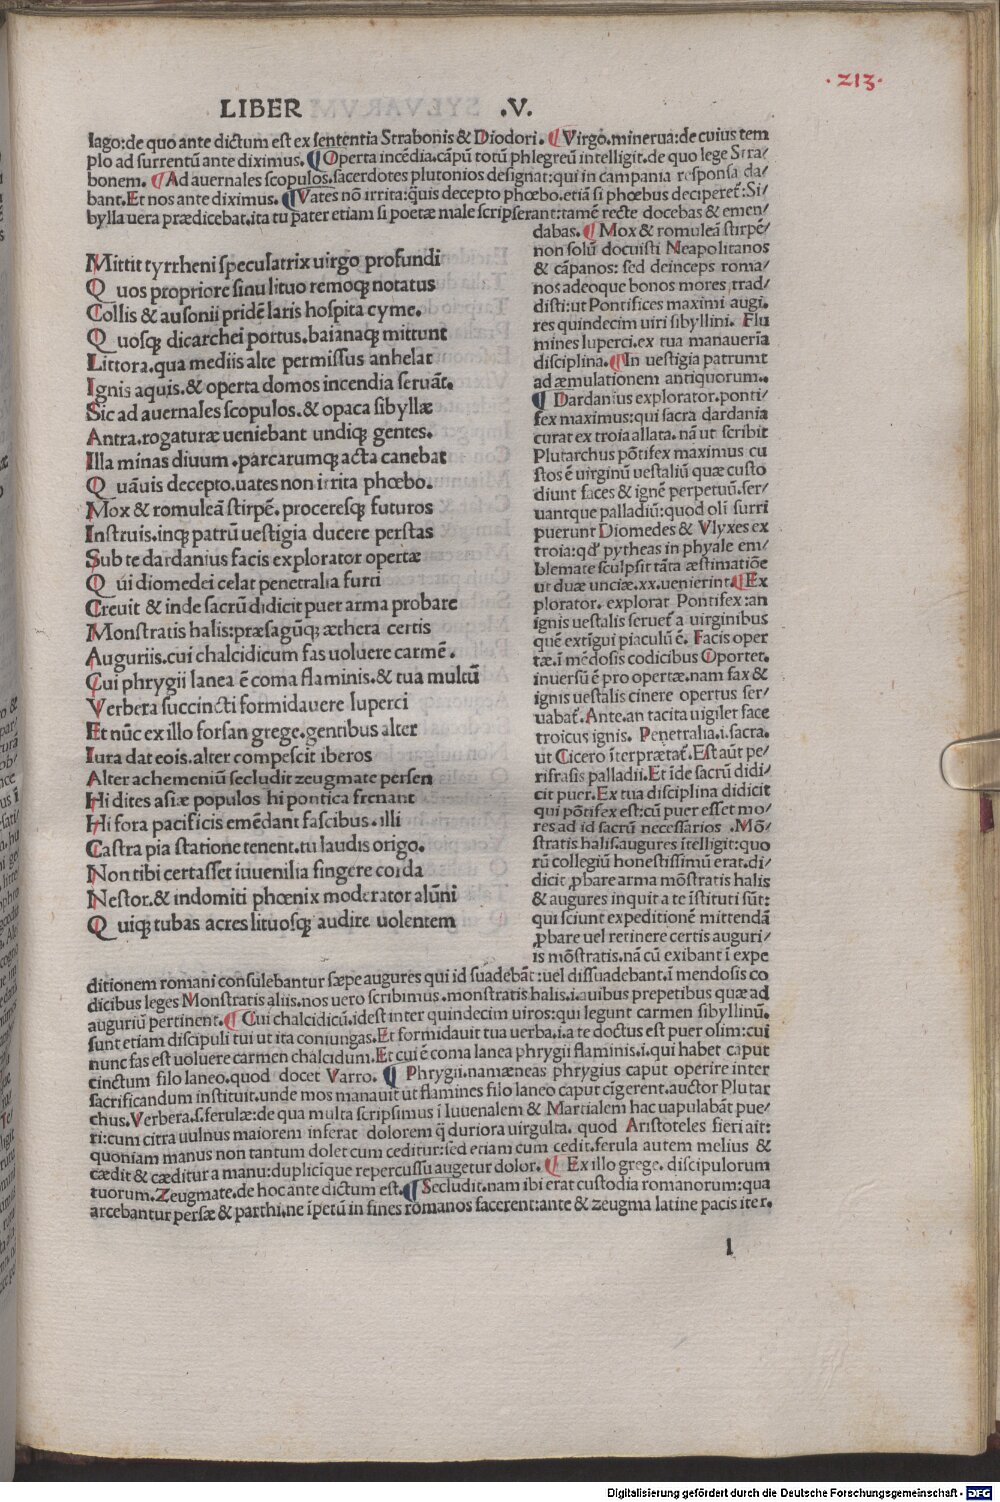 ·213·
LIBER .V.
lago:de quo ante dictum est ex sententia Strabonis & Diodori. ¶ Virgo.minerua:de cuius tem
plo ad surrentū ante diximus. ¶ Operta incēdia.cāpū totū phlegreū intelligit.de quo lege Stra/
bonem. ¶ Ad auernales scopulos.sacerdotes plutonios designat:qui in campania responsa da/
bant.Et nos ante diximus. ¶ Vates nō irrita:q̃uis decepto phœbo.etiā si phœbus deciperet̃:Si/
bylla uera prædicebat.ita tu pater etiam si poetæ male scripserant:tamē recte docebas & emen/
Mittit tyrrheni speculatrix uirgo profundi
Q uos propriore sinu lituo remoq; notatus
Collis & ausonii pridē laris hospita cyme.
Q uosq; dicarchei portus.baianaq; mittunt
Littora.qua mediis alte permissus anhelat
Ignis aquis.& operta domos incendia seruāt.
Sic ad auernales scopulos.& opaca sibyllæ
Antra.rogaturæ ueniebant undiq; gentes.
Illa minas diuum .parcarumq; acta canebat
Q uāuis decepto.uates non irrita phœbo.
Mox & romuleā stirpē.proceresq; futuros
Instruis.inq; patrū uestigia ducere perstas
Sub te dardanius facis explorator opertæ
Q ui diomedei celat penetralia furti
Creuit & inde sacrū didicit puer arma probare
Monstratis halis:præsagūq; æthera certis
Auguriis.cui chalcidicum fas uoluere carmē.
Cui phrygii lanea ē coma flaminis.& tua multū
Verbera succincti formidauere luperci
Et nūc ex illo forsan grege.gentibus alter
Iura dat eois.alter compescit iberos
Alter achemeniū secludit zeugmate persen
Hi dites asiæ populos hi pontica frenant
Hi fora pacificis emēdant fascibus.illi
Castra pia statione tenent.tu laudis origo.
Non tibi certasset iuuenilia fingere corda
Nestor.& indomiti phœnix moderator alūni
Q uiq; tubas acres lituosq; audire uolentem
dabas. ¶ Mox & romuleā stirpē/
non solū docuisti Neapolitanos
& cāpanos: sed deinceps roma/
nos adeoque bonos mores trad/
disti:ut Pontifices maximi augi.
res quindecim uiri sibyllini. Flu
mines luperci.ex tua manaueria
disciplina. ¶ In uestigia patrumt
ad æmulationem antiquorum..
¶ Dardanius explorator.ponti/
fex maximus:qui sacra dardania
curat ex troia allata. nā ut scribit
Plutarchus pōtifex maximus cu
stos ē uirginū uestaliū quæ custo
diunt faces & ignē perpetuū.ser/
uantque palladiū:quod oli surri
puerunt Diomedes & Vlyxes ex
troia:qd' pytheas in phyale em/
blemate sculpsit tāta æstimatiōe
ut duæ unciæ.xx.uenierint. ¶ Ex
plorator. explorat Pontifex:an
ignis uestalis seruet̃ a uirginibus
quē extīgui piaculū ē. Facis oper
tæ.ī mēdosis codicibus Oportet.
inuersū ē pro opertæ.nam fax &
ignis uestalis cinere opertus ser/
uabat̃.Ante.an tacita uigilet face
troicus ignis. Penetralia.i.sacra.
ut Cicero īterprætat̃.Est aūt pe/
rifrasis palladii.Et īde sacrū didi/
cit puer.Ex tua disciplina didicit
qui pōtifex est:cū puer esset mo/
res ad id sacrū necessarios .Mō/
stratis halis.augures ītelligit:quo
rū collegiū honestissimū erat.di/
dicit ꝓbare arma mōstratis halis
& augures inquit a te īstituti sūt:
qui sciunt expeditionē mittendā
ꝓbare uel retinere certis auguri/
is mōstratis.nā cū exibant ī expe
ditionem romani consulebantur sæpe augures qui id suadebāt:uel dissuadebant.ī mendosis co
dicibus leges Monstratis aliis.nos uero scribimus .monstratis halis.i.auibus prepetibus quæ ad
auguriū pertinent. ¶ Cui chalcidicū.idest inter quindecim uiros:qui legunt carmen sibyllinū.
sunt etiam discipuli tui ut ita coniungas.Et formidauit tua uerba.i.a te doctus est puer olim:cui
nunc fas est uoluere carmen chalcidum.Et cui ē coma lanea phrygii flaminis.i.qui habet caput
cinctum filo laneo.quod docet Varro. ¶ Phrygii.namæneas phrygius caput operire inter
sacrificandum instituit.unde mos manauit ut flamines filo laneo caput cīgerent.auctor Plutar
chus.Verbera.s.ferulæ:de qua multa scripsimus ī Iuuenalem & Martialem hac uapulabāt pue/
ri:cum citra uulnus maiorem inferat dolorem q̃ duriora uirgulta. quod Aristoteles fieri ait:
quoniam manus non tantum dolet cum ceditur:sed etiam cum cedit.ferula autem melius &
cædit & cæditur a manu:duplicique repercussu augetur dolor. ¶ Ex illo grege. discipulorum
tuorum.Zeugmate.de hoc ante dictum est. ¶ Secludit.nam ibi erat custodia romanorum:qua
arcebantur persæ & parthi.ne īpetū in fines romanos facerent:ante & zeugma latine pacis iter.
l
Digitalisierung gefördert durch die Deutsche Forschungsgemeinschaft - DFG